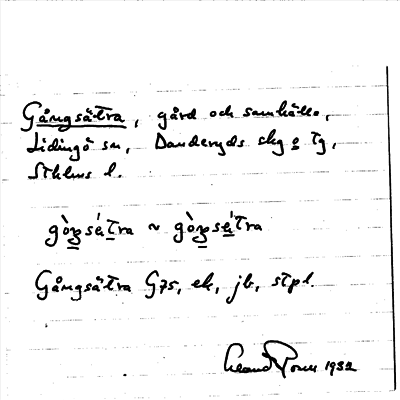 Gångsätra, gård och samhälle,
Lidingö sn, Danderyds skg o tg,
Sthlms l.
gòŋsétra ~ gòŋsétra
Gångsätra G75, ek, jb, stpl.
1932